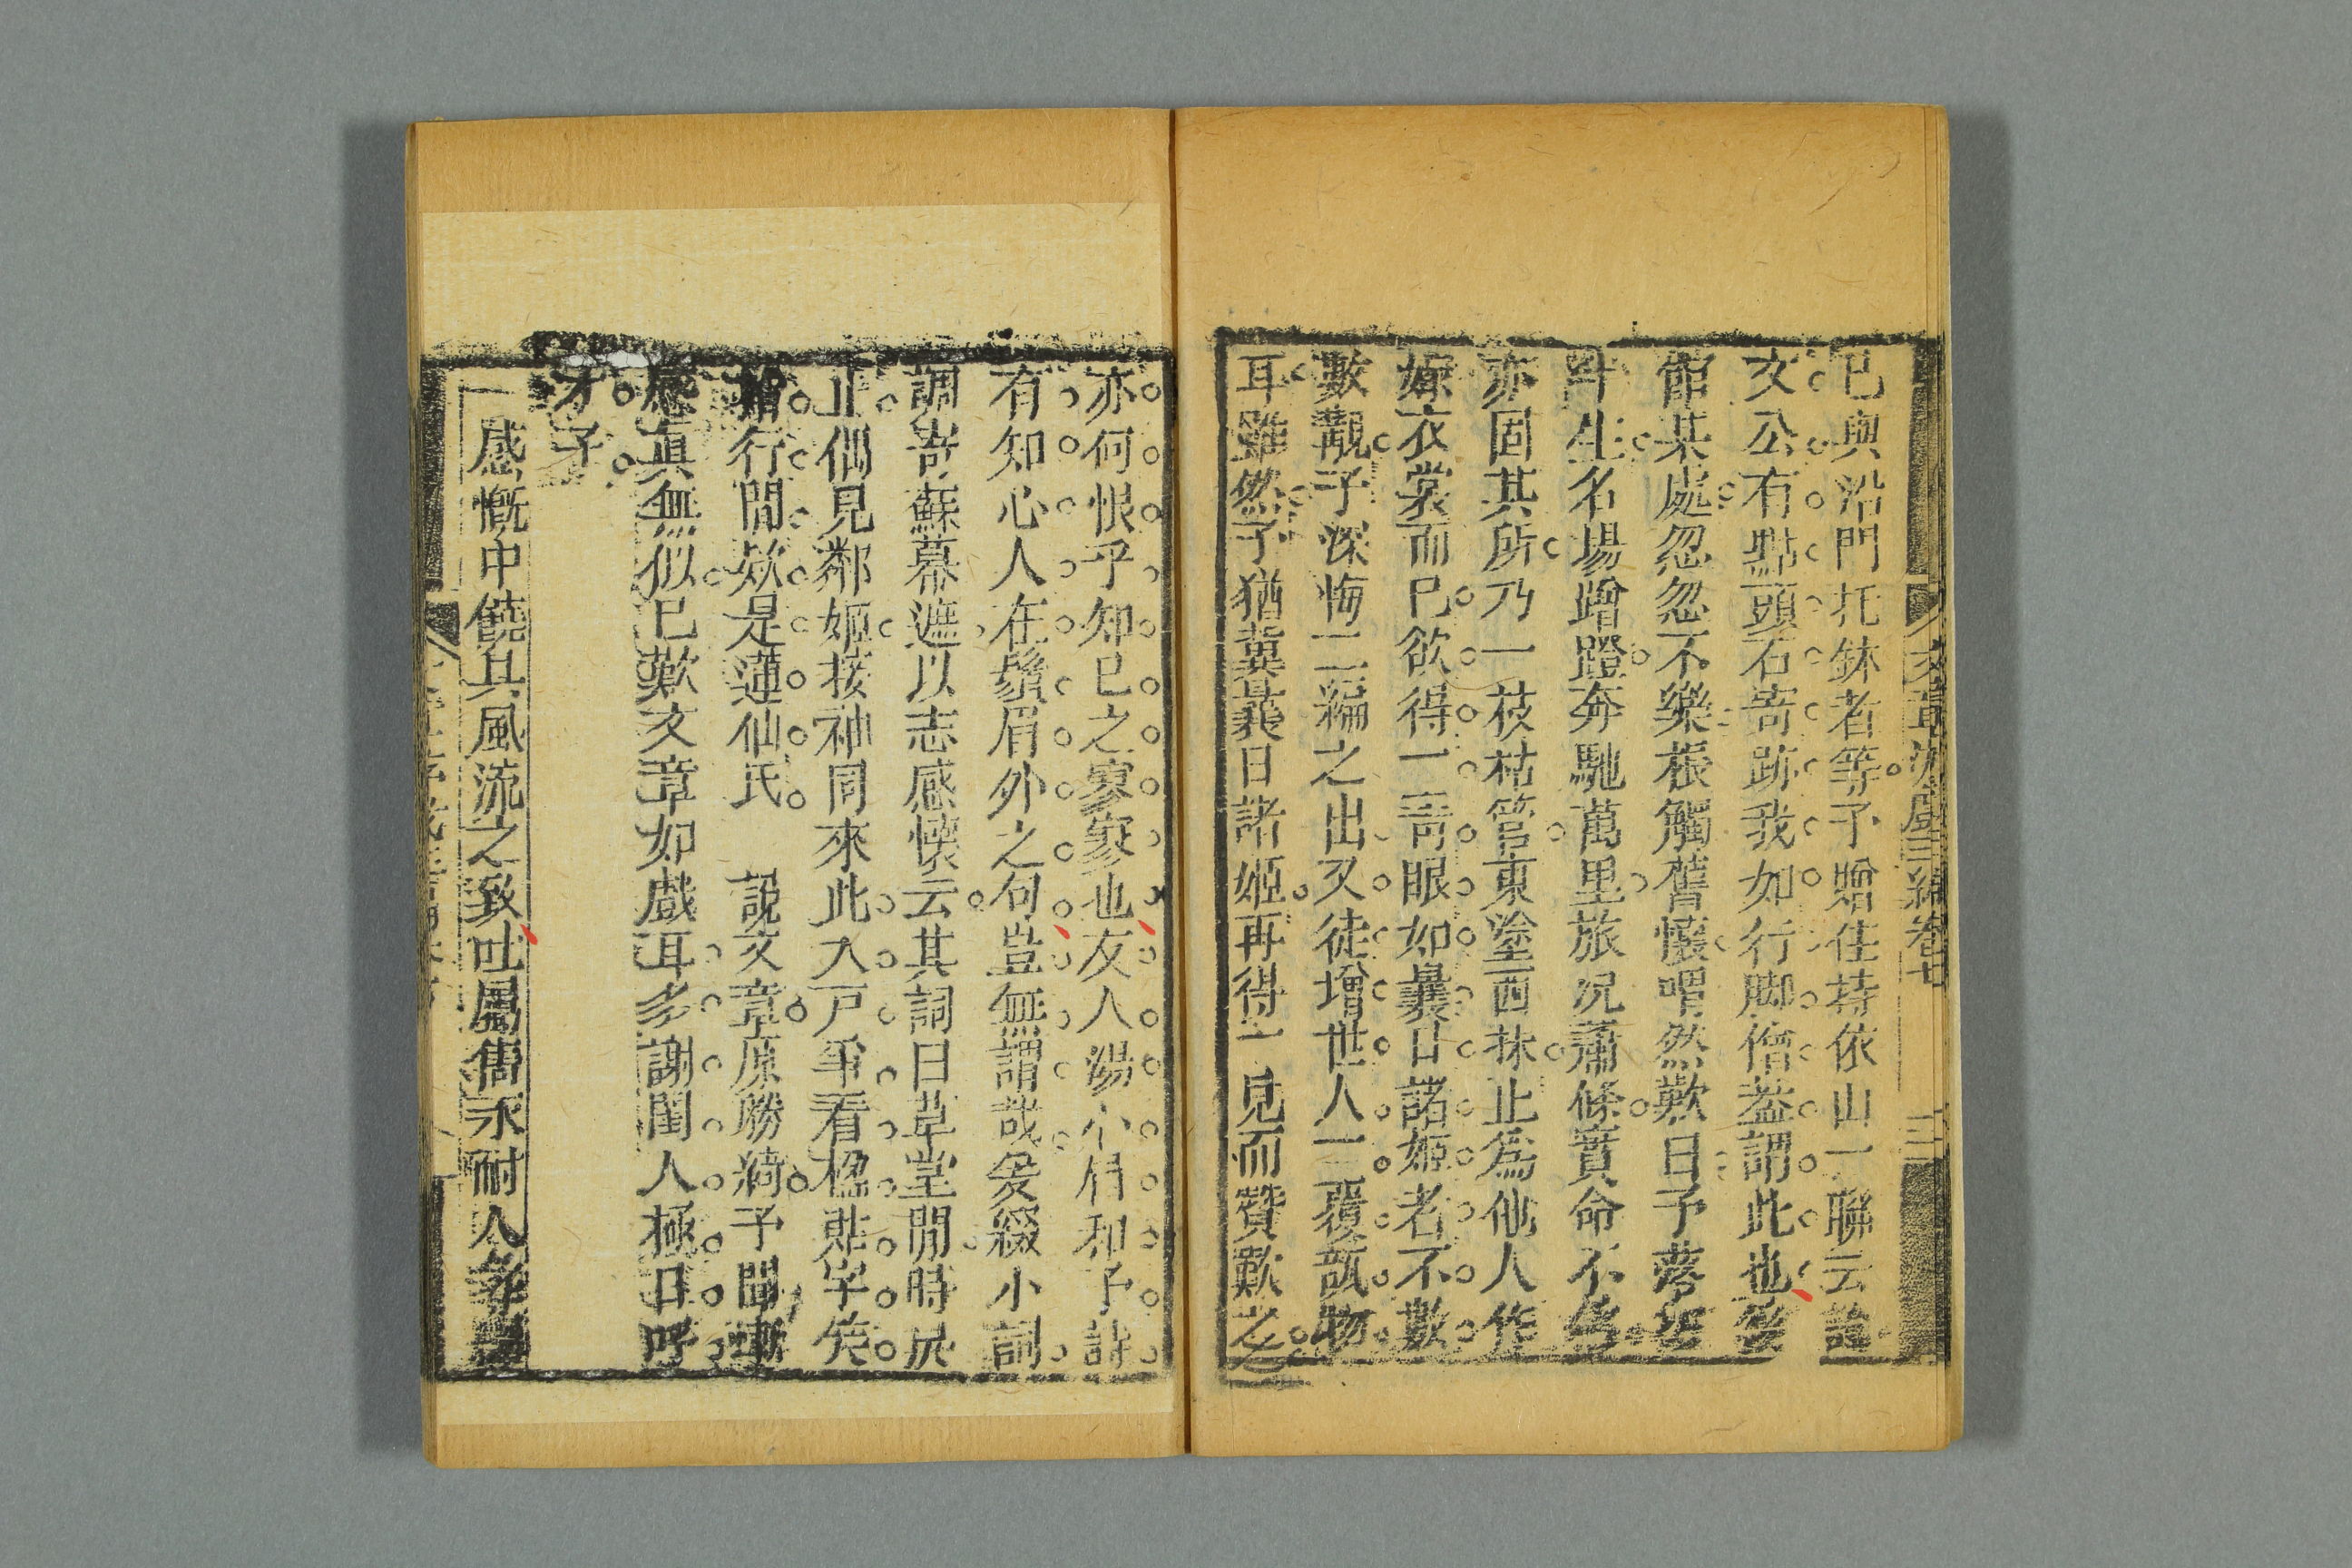 已與沿門托鉢者等予贈住持依山一聯云說
文公有點頭石寄跡我如行脚僧蓋謂此也後
館某處忽忽不樂棖觸舊懷喟然歎曰予落拓
半生名場蹭蹬奔馳萬里旅况蕭條實命不
亦固其所乃一枝枯管東塗西抹止為他人作
嫁衣裳而已欲得一青眼如曩日諸姬者不數
數覯予深悔一編之出又徒增世人一覆瓿物
耳雖然予猶冀曩日諸姬再得一見而贊歎之
亦何恨乎知己之寥寥也友人湯小眉和予詩
有知心人在鬚眉外之句豈無謂哉爰綴小詞
調寄蘇幕遮以志感懷云其詞曰草堂閒時戾
止偶見鄰姬接袖同來此入戸爭看楹貼字笑
指行間欵是蓮仙氏 說文章原勝綺予聞慚
感真無似已歎文章如戲耳多謝閨人極口呼
才子
感慨中饒其風流之致吐屬雋永耐人
文章游戲三編卷七
三